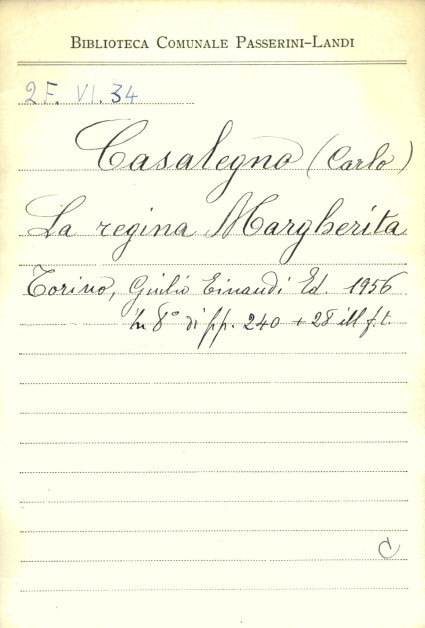 BIBLIOTECA COMUNALE PASSERINI-LANDI
2F. VI. 34
Casalegno (Carlo)
La regina Margherita
Torino, Giulio Einaudi Ed. 1956
In 8° di pp. 240 + 28 ill f.t.
C